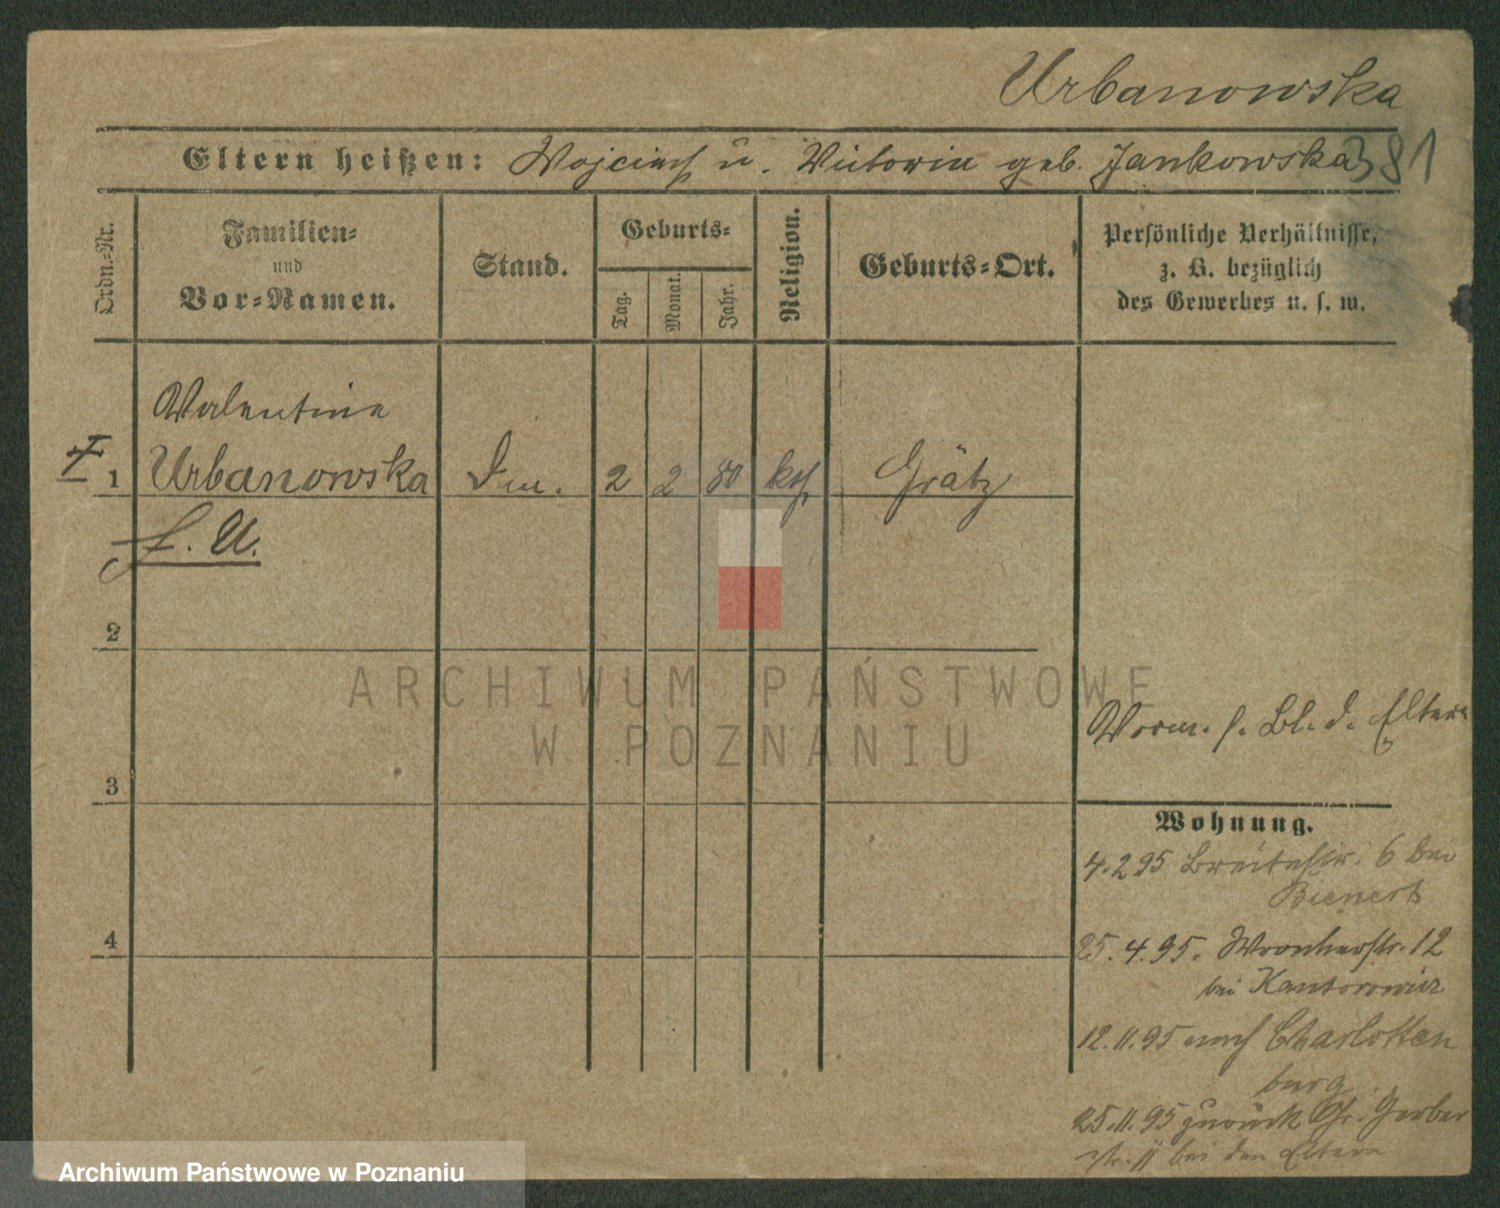 Urbanowska
Eltern heißen: Wojciech u. Victoria geb. Jankowska 381
Ordn.-Nr.
Familien-
und
Vor-Namen.
Stand.
Geburts-
Tag.
Monat.
Jahr.
Religion.
Geburts-Ort.
Persönliche Verhältnisse,
z. B. bezüglich
des Gewerbes u. s. w.
Valentine
1 Urbanowska Dm. 2 2 80 kth Grätz
f. U.
2
3
4
Vorm. s. Bl. d. Eltern
Wohnung.
4.2.95 Breitestr. 6 bei
Bienert
25.4.95. Wronkerstr. 12
bei Kantorowicz
12.11.95 nach Charlotten
burg
25.11.95 zurück Gr. Gerber
str. 11 bei den Eltern
ARCHIWUM PAŃSTWOWE
W POZNANIU
Archiwum Państwowe w Poznaniu